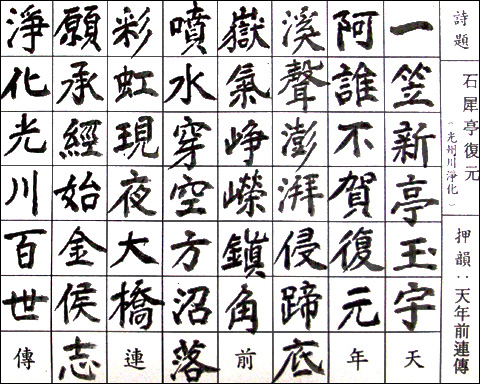 詩題
石犀亭復元
（光州川淨化）
押韻：天年前連傳
一笠新亭玉宇天
阿誰不賀復元年
溪聲澎湃侵蹄底
嶽氣崢嶸鎭角前
噴水穿空方沼落
彩虹現夜大橋連
願承經始金侯志
淨化光川百世傳